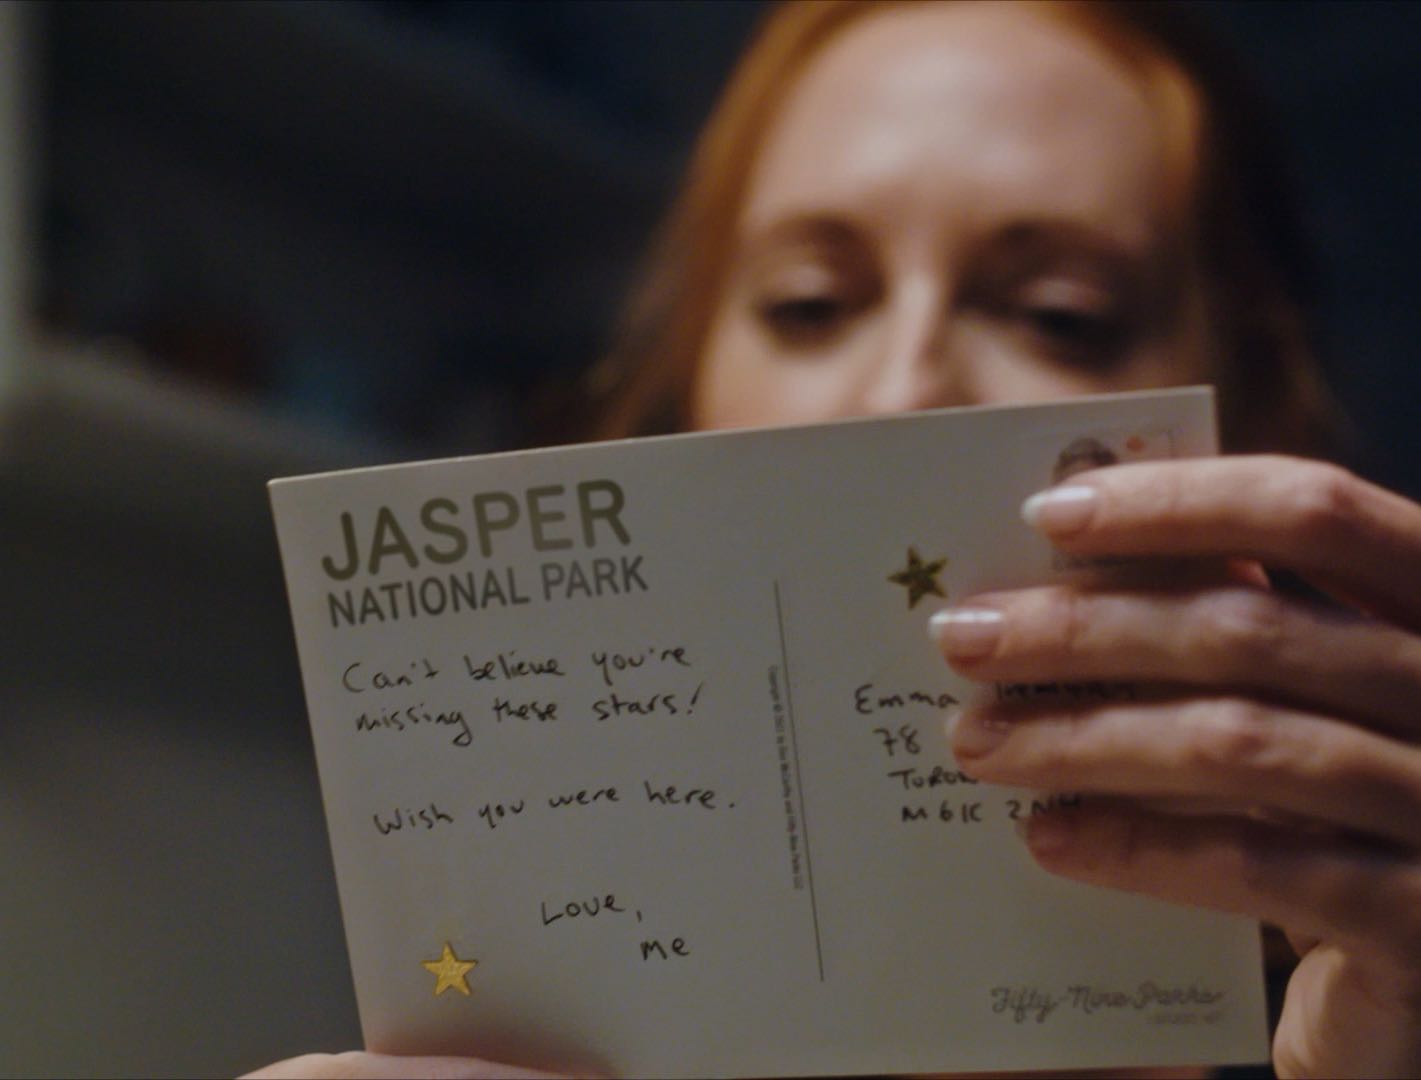 JASPER
NATIONAL PARK
Can't believe you're
missing these stars!
Wish you were here.
Love,
me
Emma
78
M6K 2NH
Fifty-Nine Parks